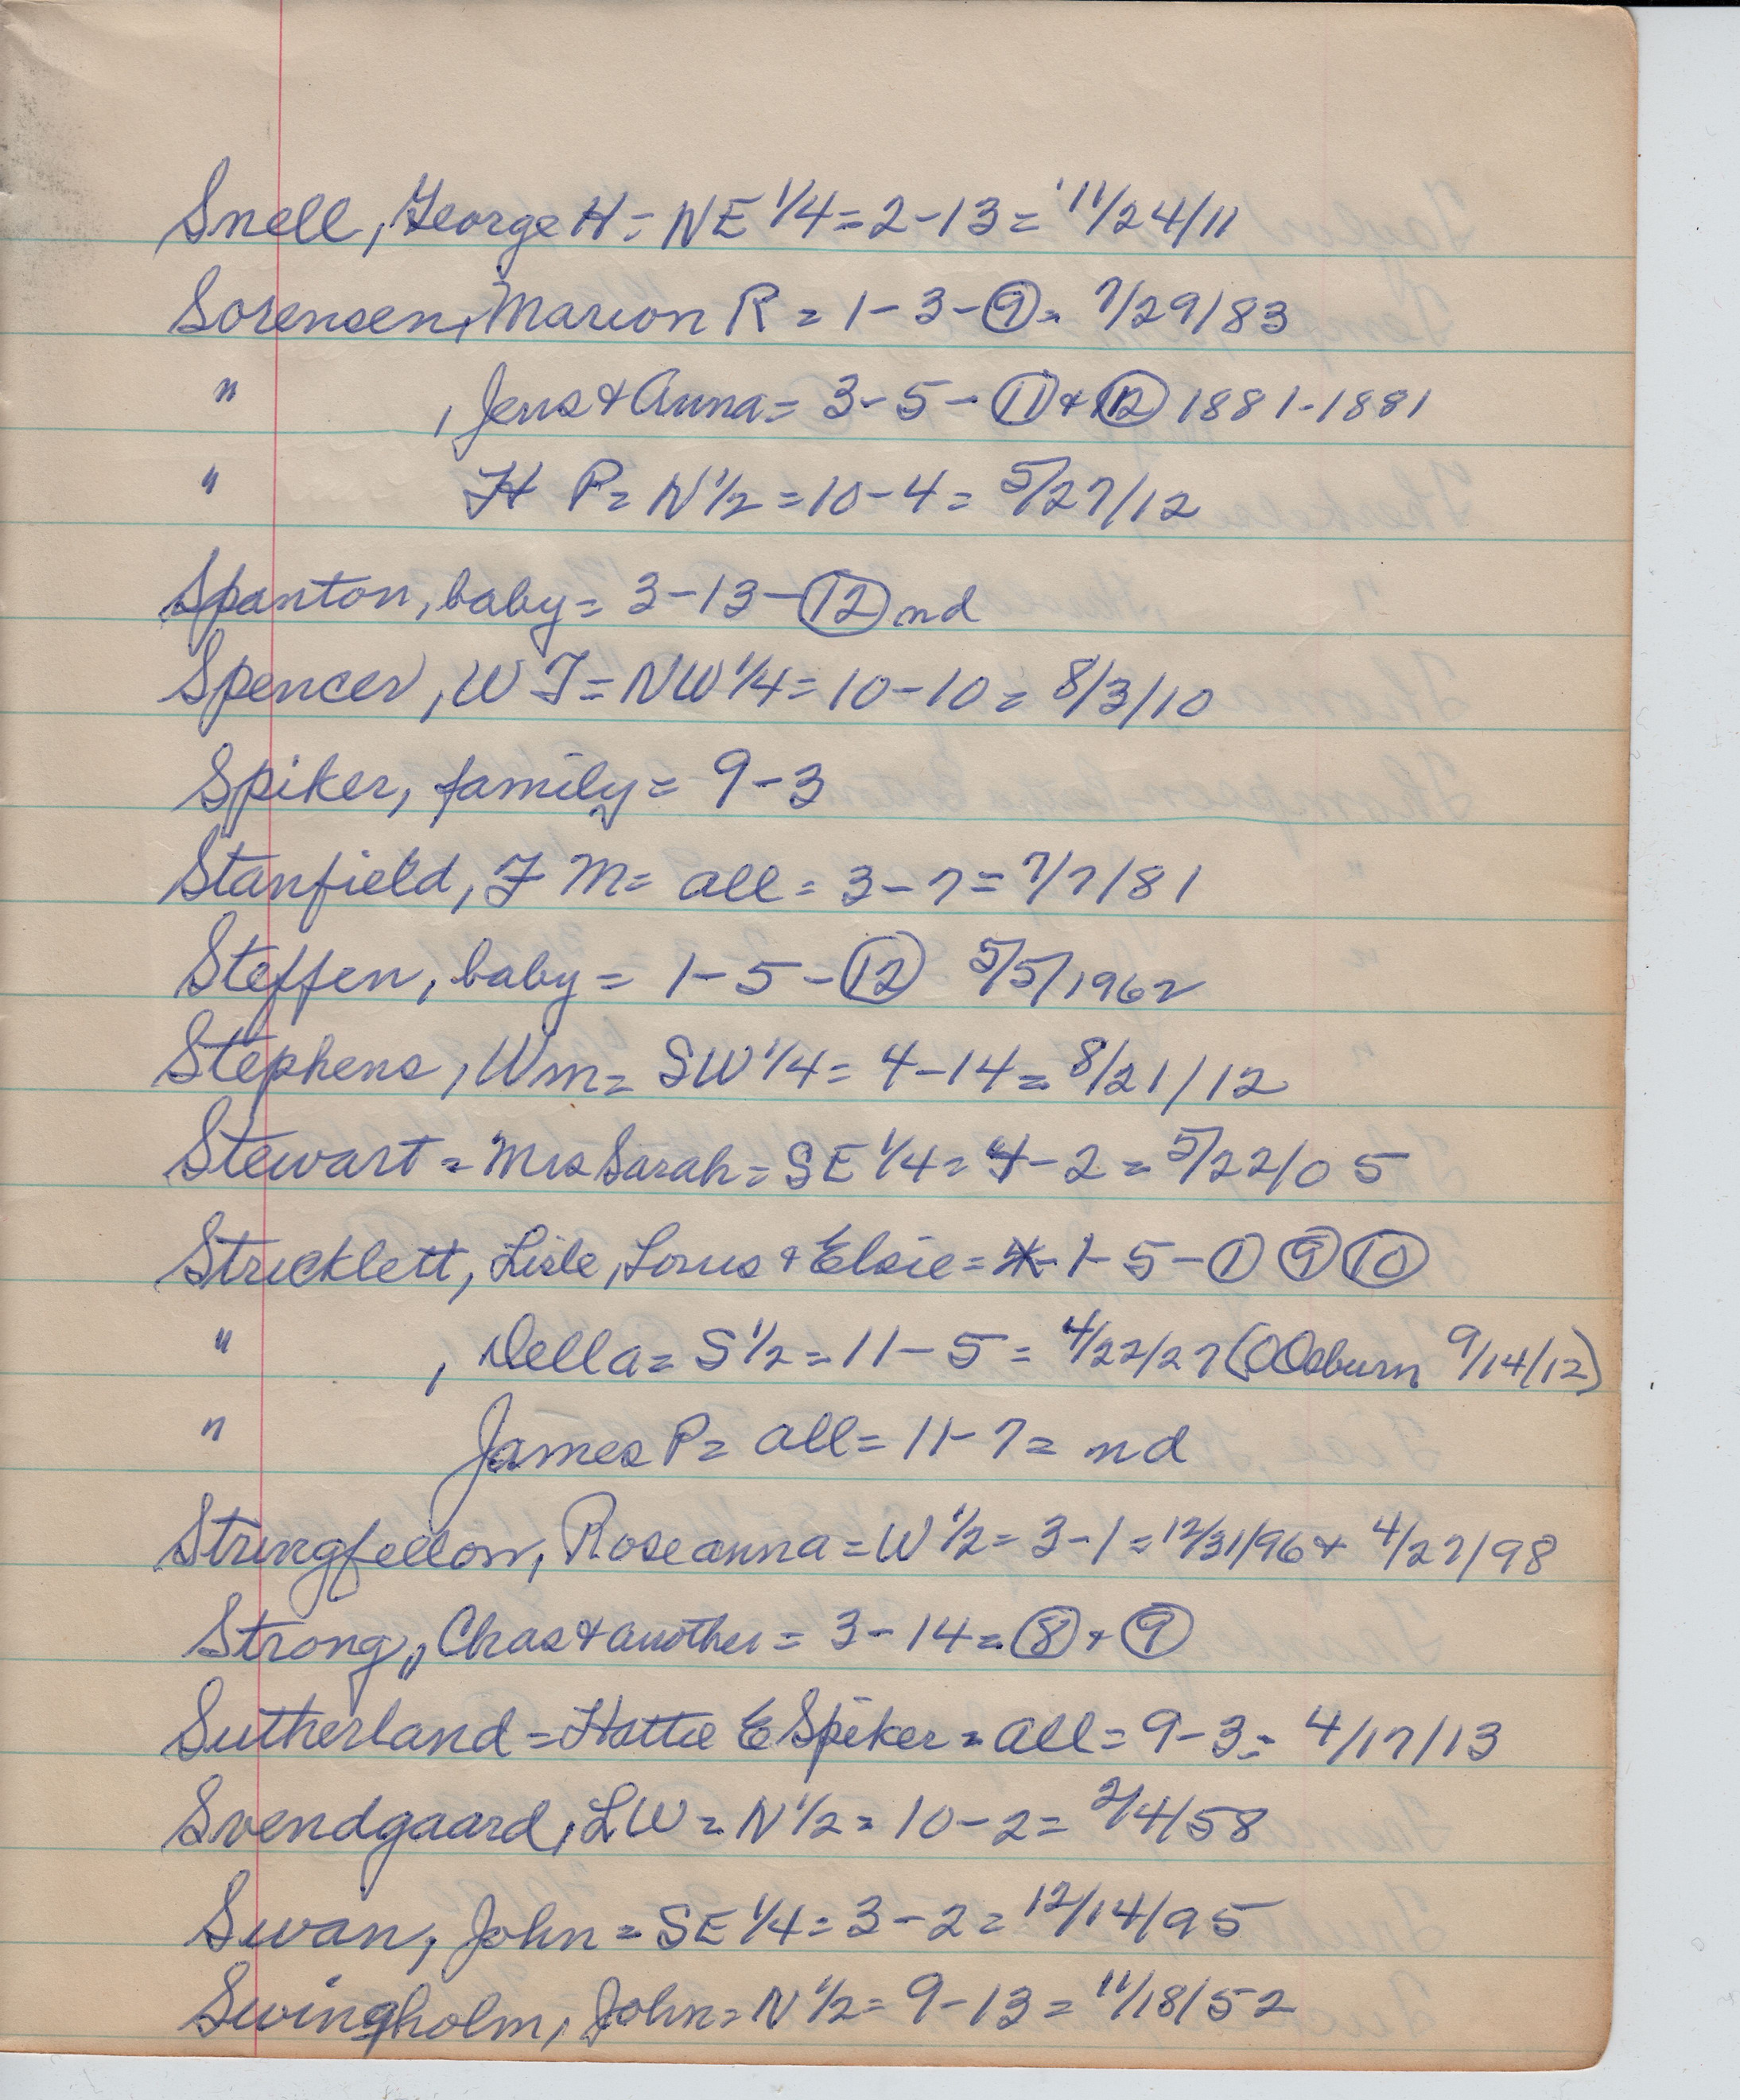 Snell, George H = NE 1/4 = 2-13 = 11/24/11
Sorensen, Marion R = 1-3-⑨ = 7/29/83
" , Jens & Anna = 3-5-⑪ & ⑫ 1881-1881
" H P = N 1/2 = 10-4 = 5/27/12
Spanton, baby = 3-13-⑫ nd
Spencer, W F = NW 1/4 = 10-10 = 8/3/10
Spiker, family = 9-3
Stanfield, F M = all = 3-7 = 7/7/81
Steffen, baby = 1-5-⑫ 5/5/1962
Stephens, Wm = SW 1/4 = 4-14 = 8/21/12
Stewart = Mrs Sarah = SE 1/4 = 4-2 = 5/22/05
Stricklett, Lisle, Lorus & Elsie = 1-5-① ⑨ ⑩
" , Della = S 1/2 = 11-5 = 4/22/27 (O Osburn 9/14/12)
" James P = all = 11-7 = nd
Stringfellow, Roseanna = W 1/2 = 3-1 = 12/31/96 & 4/27/98
Strong,, Chas & another = 3-14 = ⑧ & ⑨
Sutherland = Hattie E Spiker = all = 9-3 = 4/17/13
Svendgaard, L W = N 1/2 = 10-2 = 2/4/58
Swan, John = SE 1/4 = 3-2 = 12/14/95
Swingholm, John = N 1/2 = 9-13 = 11/18/52